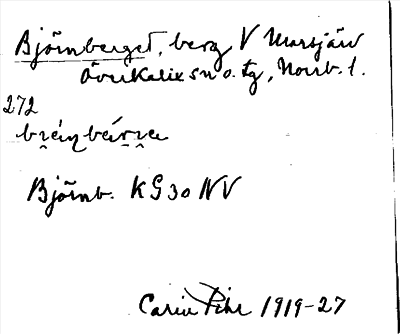 Björnberget, berg V Marsjärv
Överkalix sn o. tg, Norrb. l.
272
Björnb. KG30 NV
Carin Pihl 1919-27